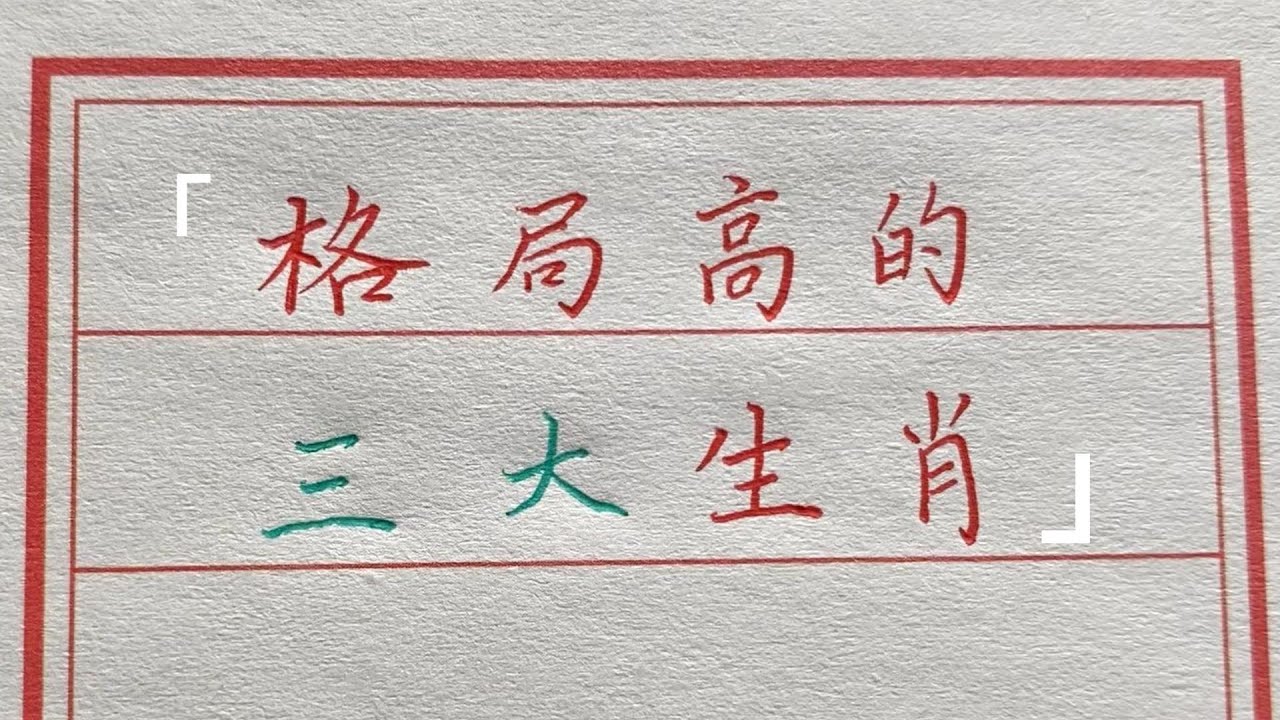 「格局高的
三大生肖」